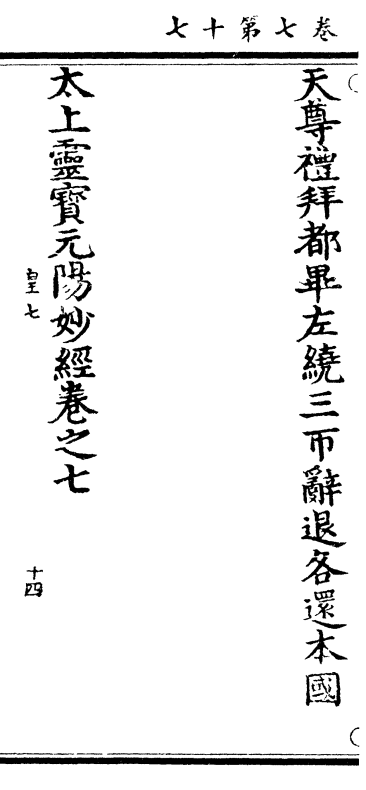 七十第七卷
天尊禮拜都畢左繞三帀辭退各還本國
太上靈寶元陽妙經卷之七
皇七
十四